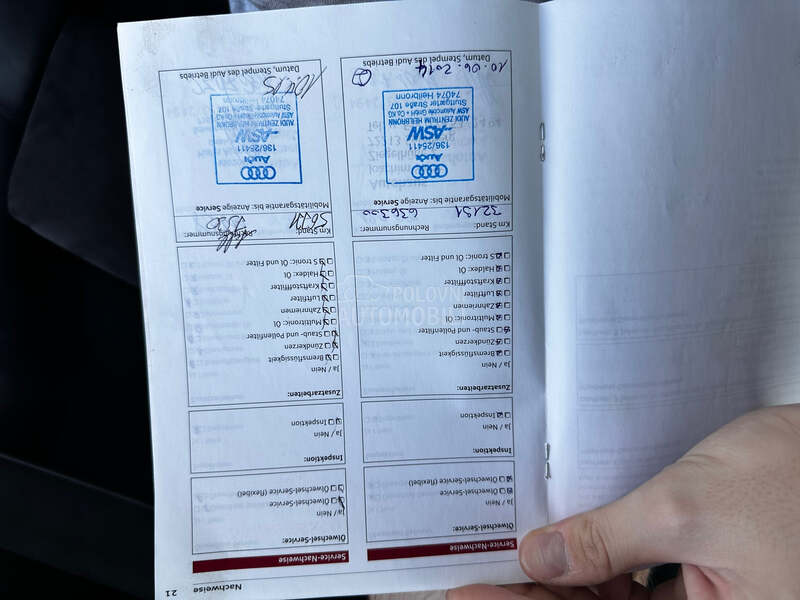 Nachweise 21
Service-Nachweise
Ölwechsel-Service:
Ja / Nein
Ölwechsel-Service
Ölwechsel-Service (flexibel)
Inspektion:
Ja / Nein
Inspektion
Zusatzarbeiten:
Ja / Nein
Bremsflüssigkeit
Zündkerzen
Staub- und Pollenfilter
Multitronic: Öl
Zahnriemen
Luftfilter
Kraftstofffilter
Haldex: Öl
S tronic: Öl und Filter
Km Stand: Rechnungsnummer:
636300
Mobilitätsgarantie bis: Anzeige Service
Audi
136/25411
ASW
AUDI ZENTRUM HEILBRONN
ASW Automobile GmbH + Co.KG
Stuttgarter Straße 107
74074 Heilbronn
10.06.2014
Datum, Stempel des Audi Betriebs
Service-Nachweise
Ölwechsel-Service:
Ja / Nein
Ölwechsel-Service
Ölwechsel-Service (flexibel)
Inspektion:
Ja / Nein
Inspektion
Zusatzarbeiten:
Ja / Nein
Bremsflüssigkeit
Zündkerzen
Staub- und Pollenfilter
Multitronic: Öl
Zahnriemen
Luftfilter
Kraftstofffilter
Haldex: Öl
S tronic: Öl und Filter
Km Stand: Rechnungsnummer:
Mobilitätsgarantie bis: Anzeige Service
Audi
136/25411
ASW
AUDI ZENTRUM HEILBRONN
ASW Automobile GmbH + Co.KG
Stuttgarter Straße 107
74074 Heilbronn
Datum, Stempel des Audi Betriebs
POLOVNI
AUTOMOBILI